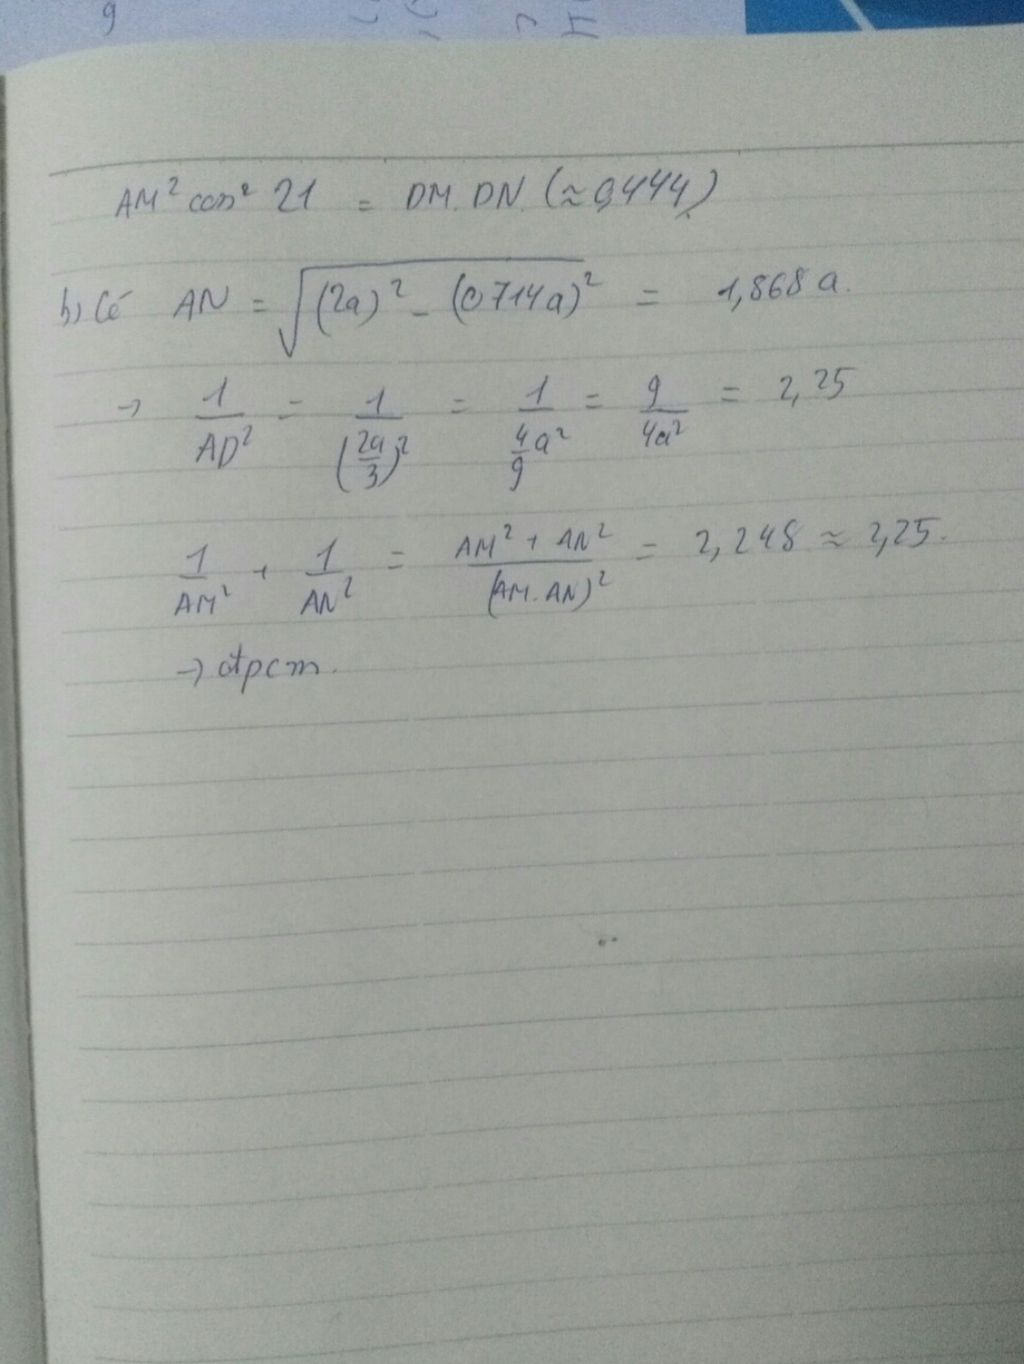 AM² cos² 21 = DM.DN (≈0,444)
b) Có AN = √(2a)² - (0,714a)² = 1,868a.
→ 1/AD² = 1/(2a/3)² = 1/(4/9 a²) = 9/4a² = 2,25
1/AM² + 1/AN² = AM² + AN²/(AM.AN)² = 2,248 ≈ 2,25.
→ đpcm.